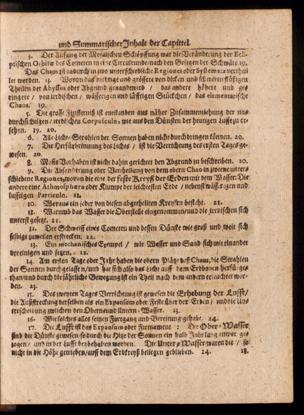 und Summarischer Inhalt der Capittel.
3. Der Anfang der Mosaischen Schöpffung war die Veränderung der Elli-
ptischen Orbitæ des Cometen in eine Circulrunde nach den Gesetzen der Schwäre 19.
Das Chaos ist dadurch in zwo unterschiedliche Regiones oder Systemata verthei-
let worden.
Theilen der Abyssus oder Abgrund genannt
dringen / von irrdischen / wässerigen und lüfftigen Stückchen / das elementarische
Chaos. 19.
5. Die grosse Finsternüß ist entstanden aus näher Zusammenziehung der un-
durchsichtigen / irrdischen Corpusculn, mit den Dünsten der heutigen Lufft zu
sehen. 19. 20.
6. Alle Lichts-Strahlen der Sonnen haben nicht durchdringen können. 20.
7. Die Verfärbennung des Lichtes / ist die Verrichtung des ersten Tages ge-
wesen. 20.
8. Mosis Vorhaben ist nicht dahin gerichtet den Abgrund zu beschreiben. 20.
9. Die Absonderung oder Vertheilung des obern Chaos in zwo unter-
schiedene Regiones, wovon die eine der feste Kreyß der Erden mit dem Wasser: Die
andere eine Athmosphæra oder Klumpe der leichtesten Erde / nebenst wässerigen und
lufftigen Particuln. 21.
10. Woraus ein jeder von diesen abgetheilten Kreysen bestehe. 21.
11. Warumb das Wasser die Oberstelle eingenommen / und die irrdischen sich
unterst gesetzt. 21.
12. Der Schweiff eines Cometen und dessen Dünste wie groß und weit sich
selbige zuweilen erstrecken. 22.
13. Ein mechanisches Exempel / wie Wasser und Sand sich mit einander
vereinigen und setzen. 22.
14. Am ersten Tage oder Jahr haben die obern Plätze des Chaos, die Strahlen
der Sonnen durchgelassen / und hat sich also das Licht auff dem Erdboden herfür ge-
than und durch die jährliche Bewegung ist ein Theil nach dem andern erleuchtet wor-
den. 23.
15. Des zweyten Tages Verrichtung ist gewesen die Erhebung der Luffte /
die Auffstreckung derselben als ein Expansum oder Feste über der Erden / und die Un-
terscheidung zwischen den Obern und Untern-Wasser. 23.
16. Wie solches alles seinen Fortgang und Bereitung gehabt. 24.
17. Die Lufft ist das Expansum oder Firmament: Die Ober-Wasser
sind die Dünste / gewesen / so durch die Hitze der Sonnen ein halb Jahr lang empor ge-
zogen / und in der Lufft beybehalten worden. Die Unter-Wasser waren die / so
nicht in die Höhe getrieben / auff dem Erdkreyß beliegen geblieben. 24.
18.